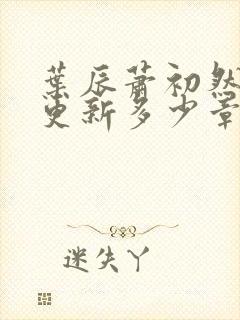 葉辰蕭初然
更新多少章
迷失丫